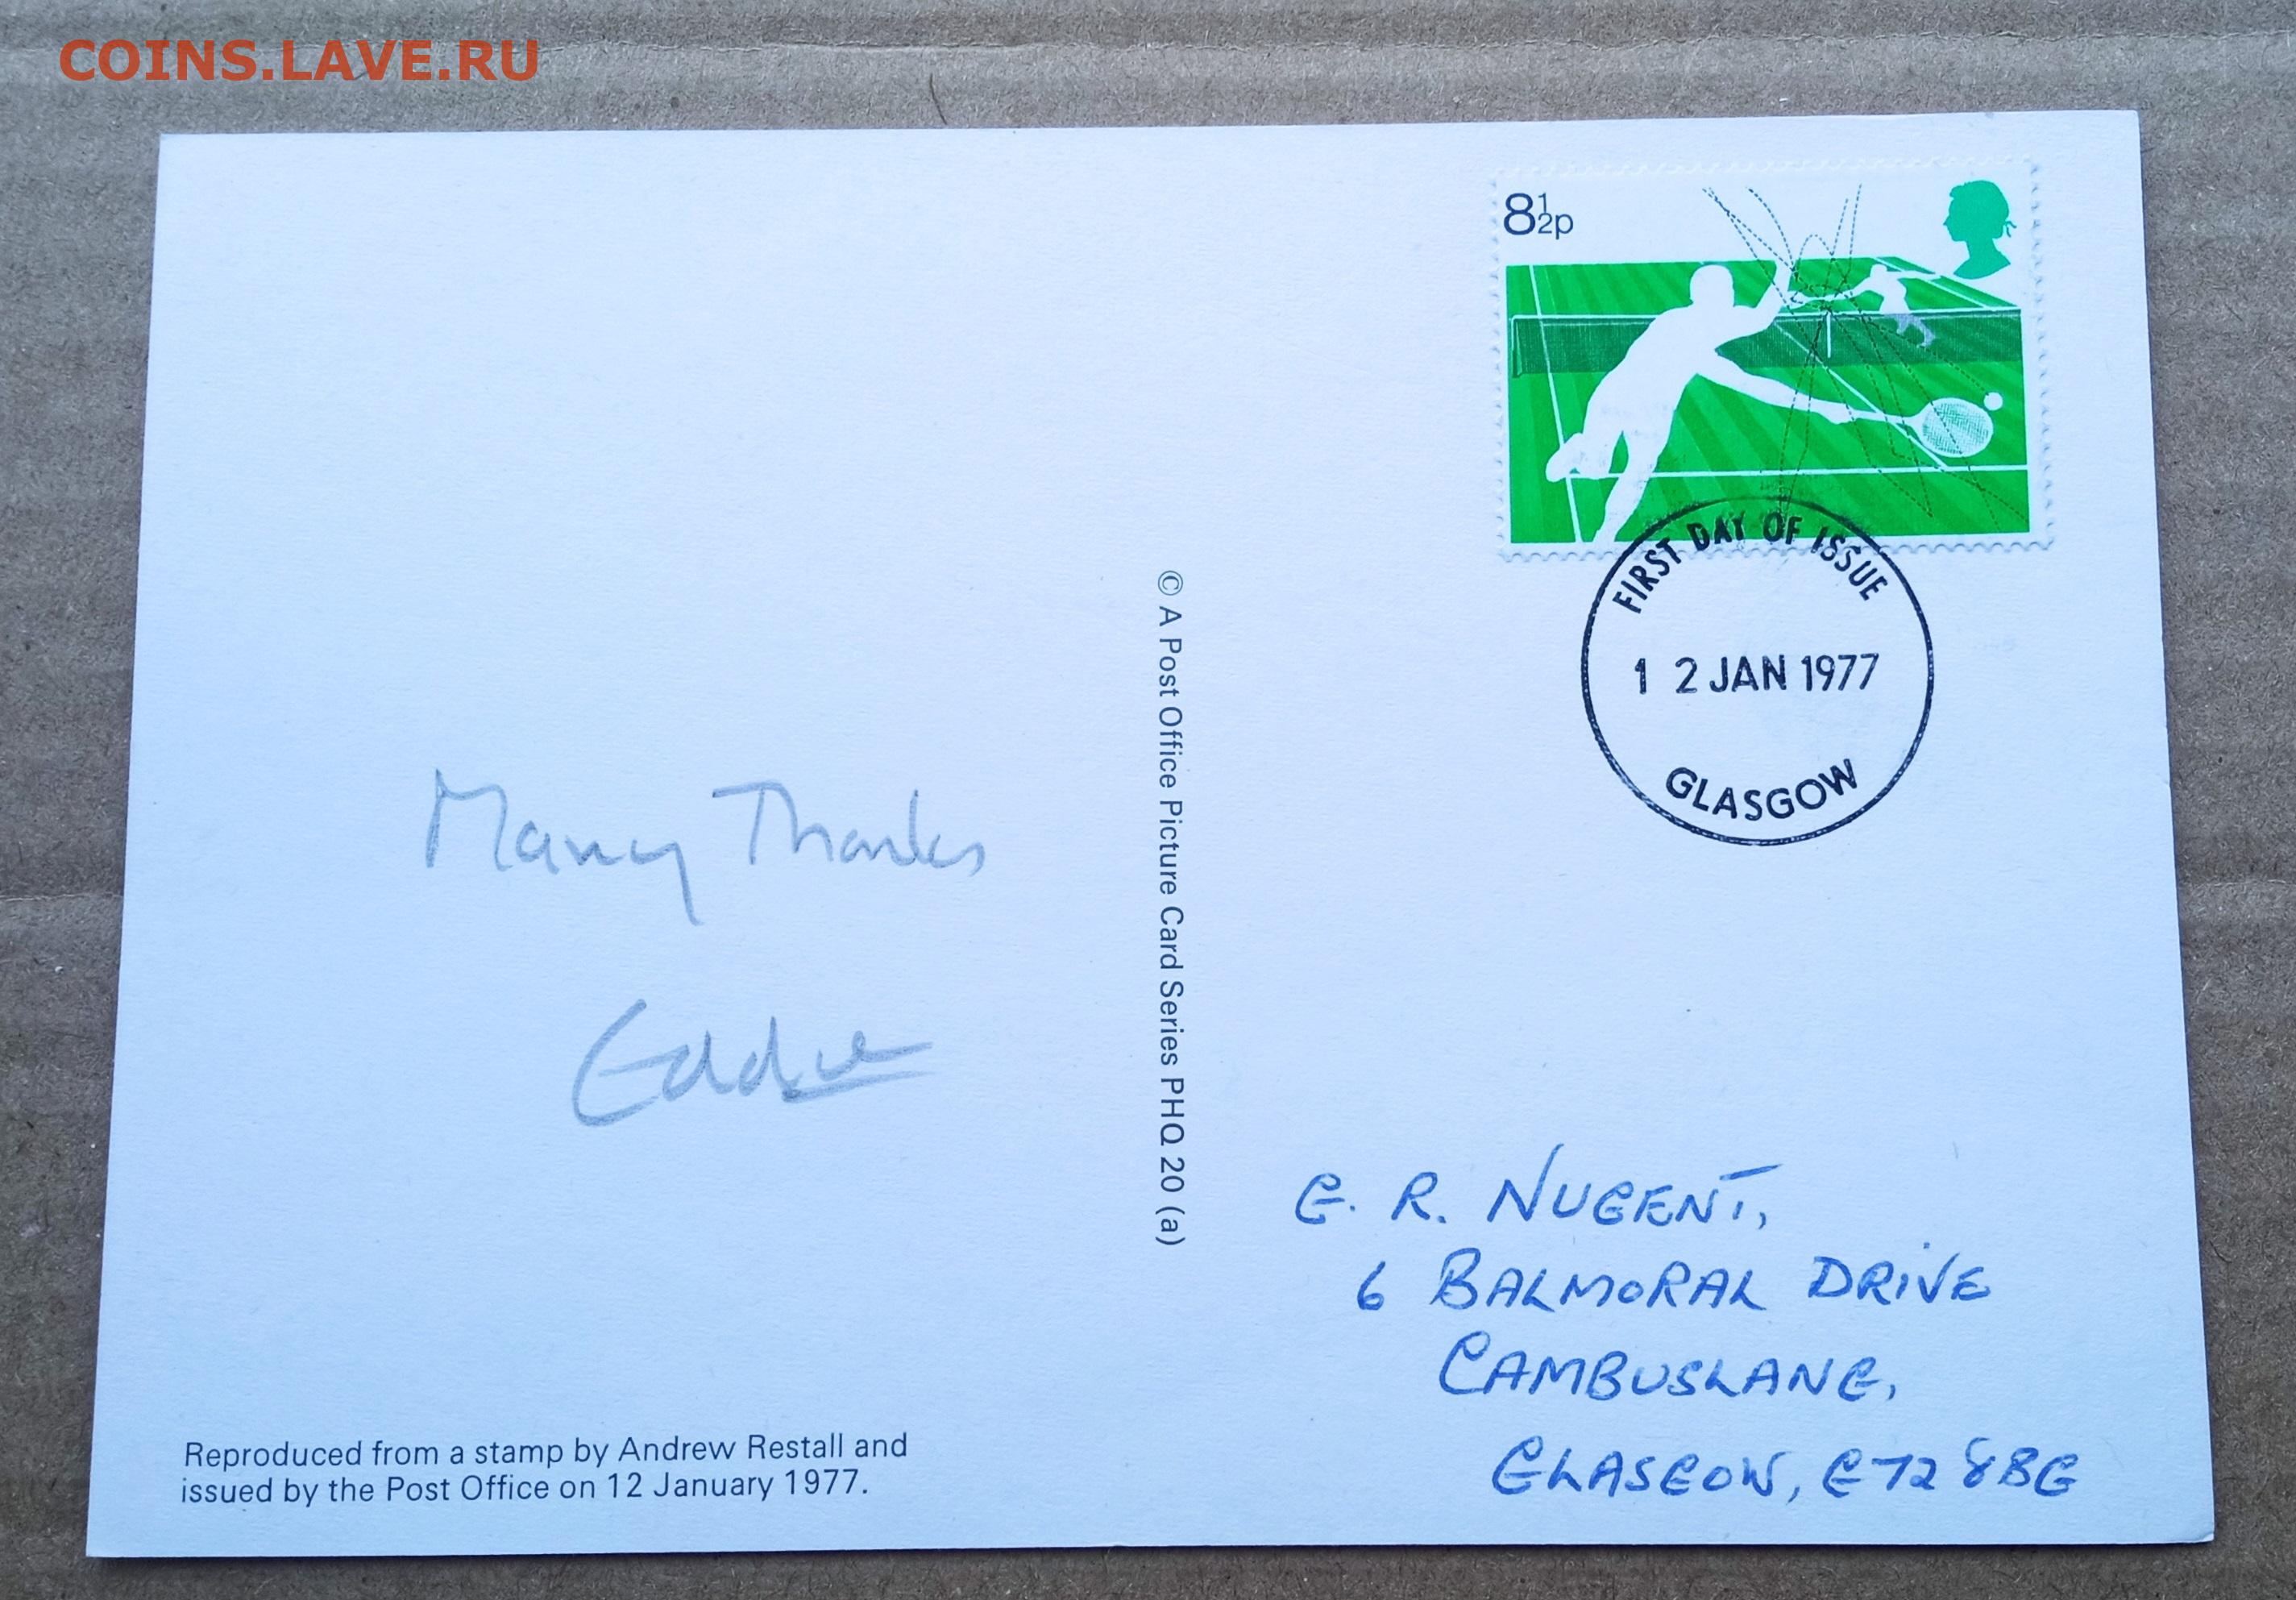 COINS.LAVE.RU
8½p
FIRST DAY OF ISSUE
12 JAN 1977
GLASGOW
Many Thanks
Eddie
© A Post Office Picture Card Series PHQ 20 (a)
G. R. NUGENT,
6 BALMORAL DRIVE
CAMBUSLANG,
GLASGOW, G72 8BG
Reproduced from a stamp by Andrew Restall and
issued by the Post Office on 12 January 1977.